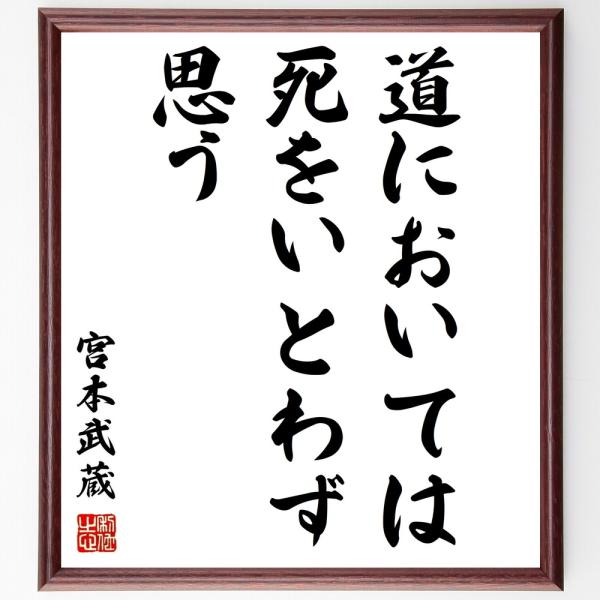 道においては
死をいとわず
思う
宮本武蔵